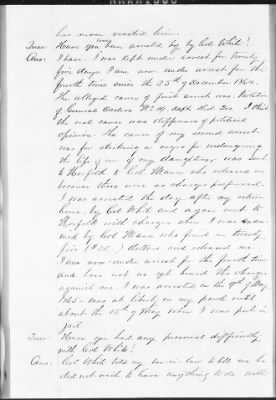 has never arrested him.
Ques: Have you ever been arrested by Col White?
Ans: I have. I was kept under arrest for twenty
five days. I am now under arrest for the
fourth time since the 25th of December 1864.
The alleged cause of first arrest was, violation
of General Order No 19. dept Va. I think
the real cause was difference of political
opinion. The cause of my second arrest
was for striking a negro for endangering
the life of one of my daughters, was sent
to Norfolk to Col Mann who released me
because there were no charges preferred.
I was arrested the day after my return
home by Col White and again sent to
Norfolk with charges when I was exam
ined by Col Mann who fined me twenty
five ($25.) dollars and released me.
I am now under arrest for the fourth time
and have not as yet heard the charges
against me. I was arrested on the 9th of May
1865 was at liberty on my parole until
about the 15th of May when I was put in
jail.
Ques: Have you had any personal difficulty
with Col White?
Ans: Col White told my son-in-law to tell me he
did not wish to have anything to do with